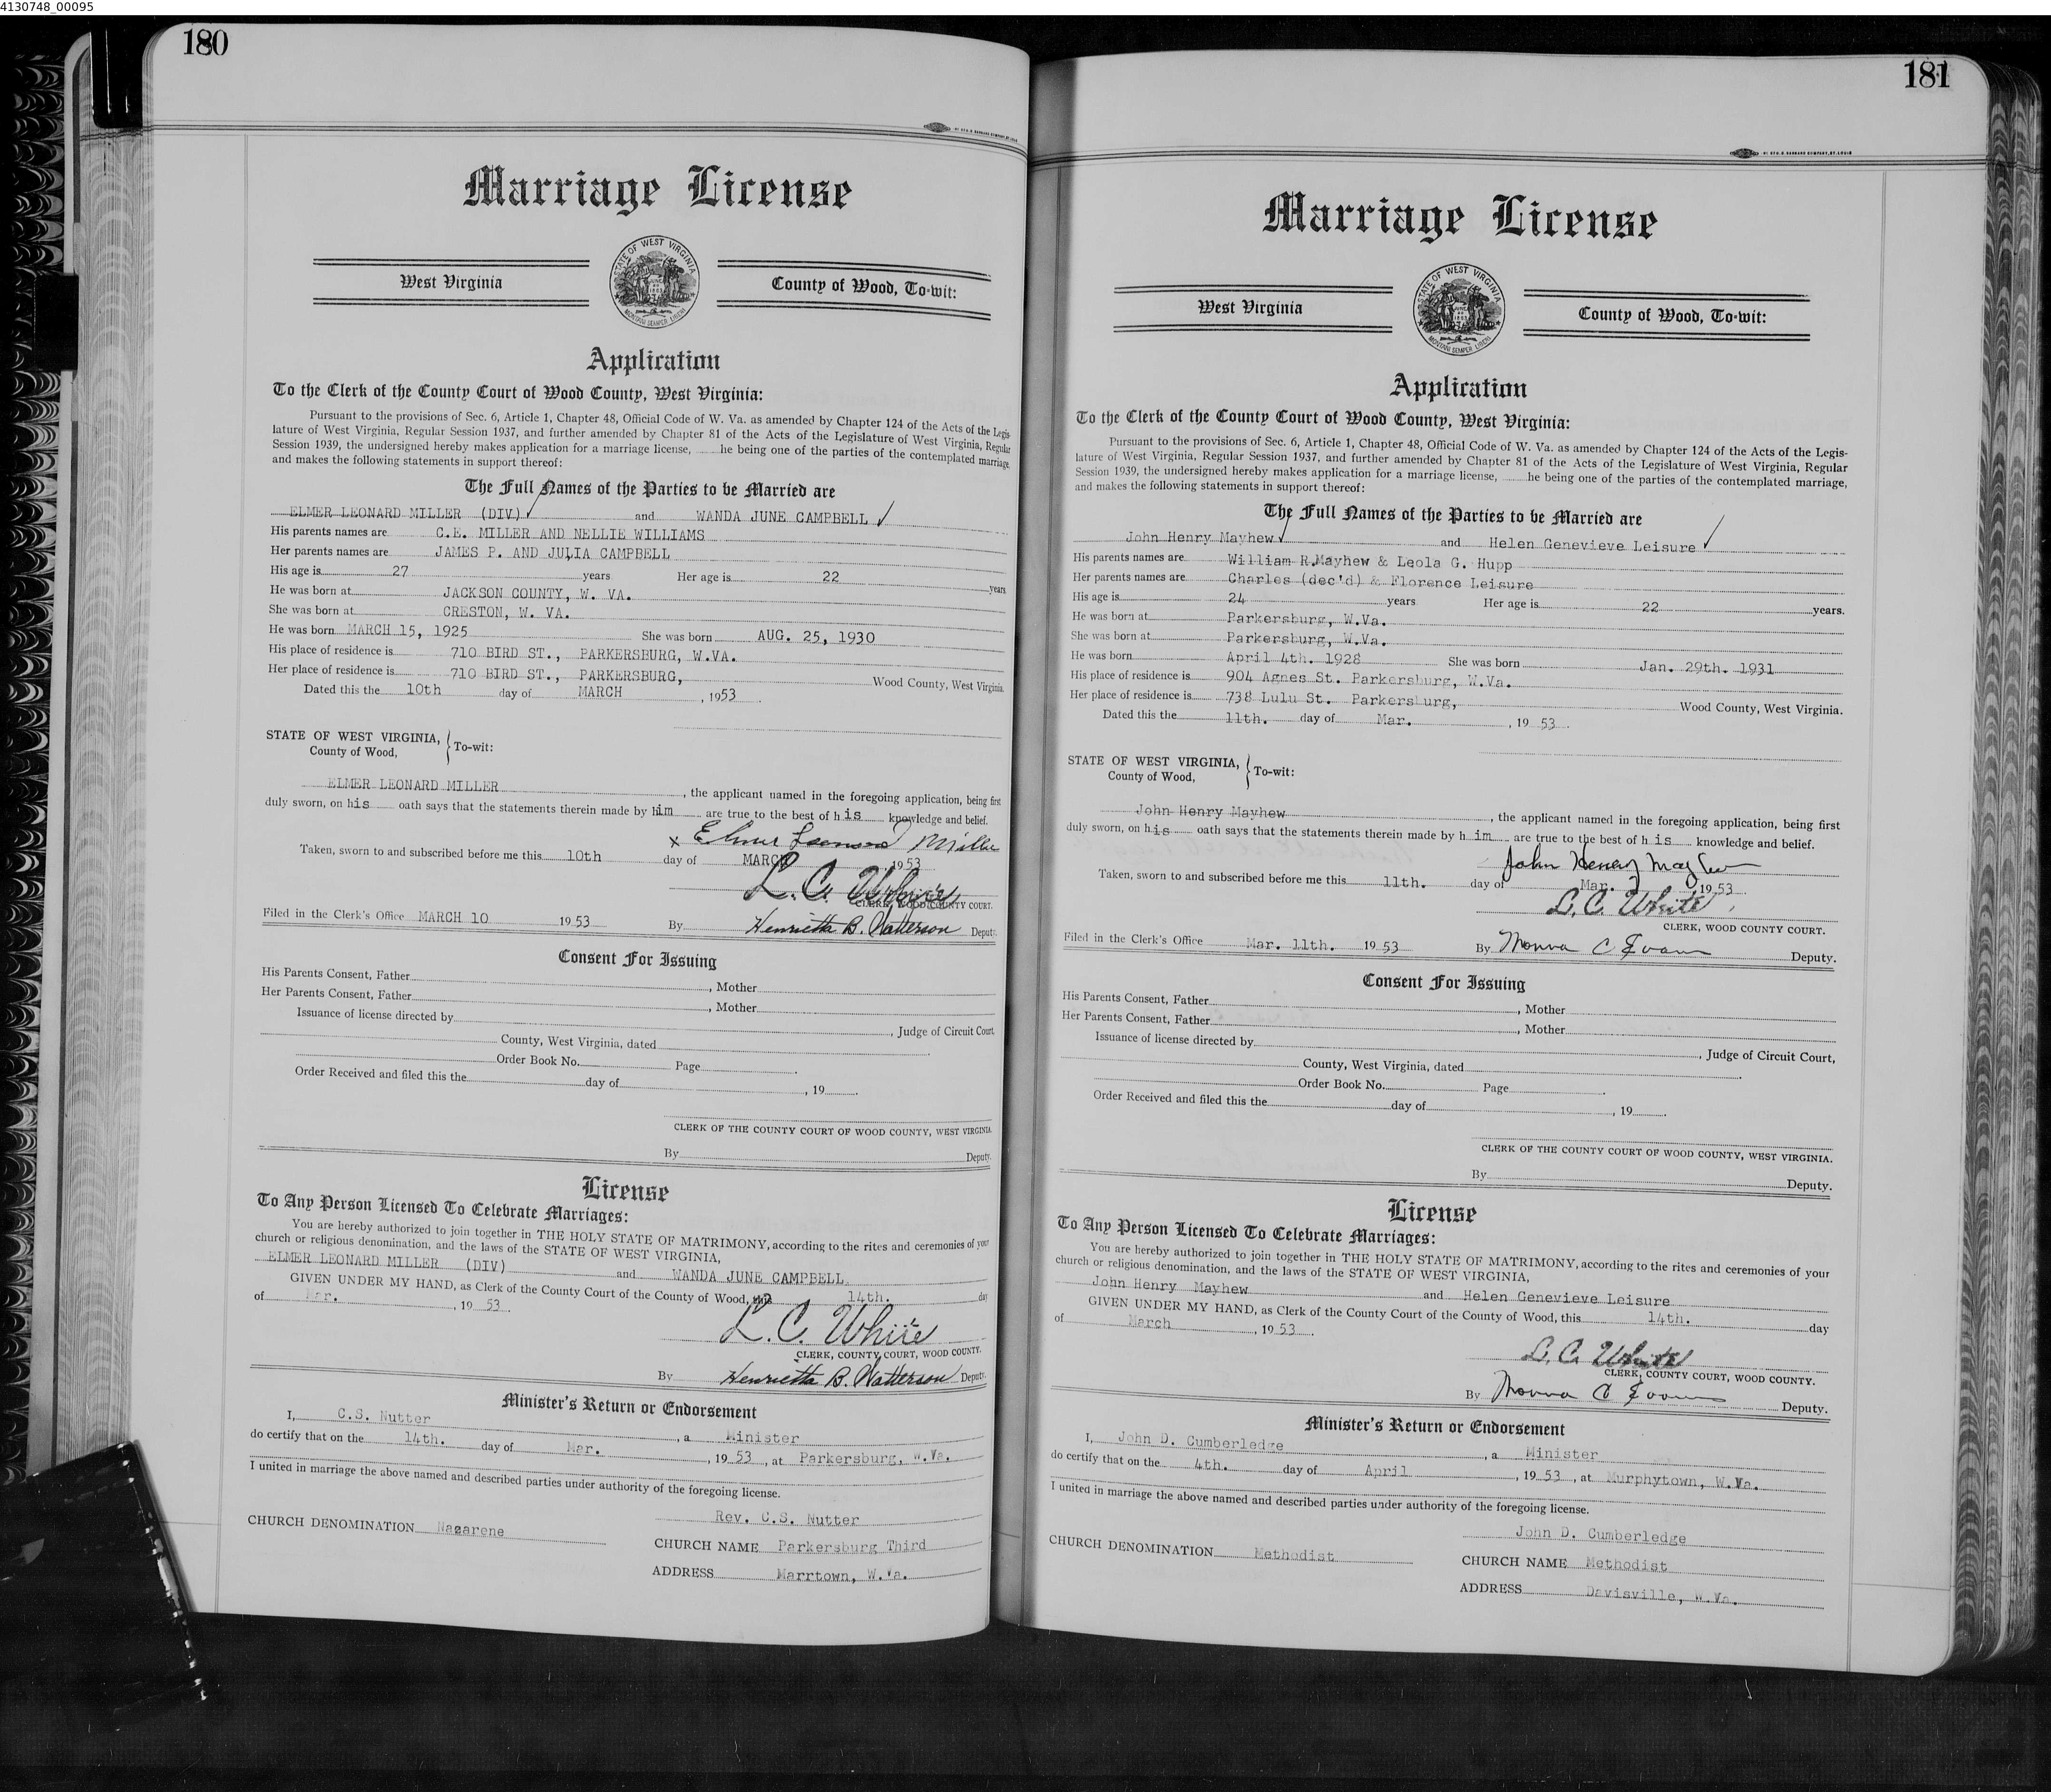 4130748_00095
180
Marriage License
West Virginia
STATE OF WEST VIRGINIA
MONTANI SEMPER LIBERI
County of Wood, To-wit:
Application
To the Clerk of the County Court of Wood County, West Virginia:
Pursuant to the provisions of Sec. 6, Article 1, Chapter 48, Official Code of W. Va. as amended by Chapter 124 of the Acts of the Legis-
lature of West Virginia, Regular Session 1937, and further amended by Chapter 81 of the Acts of the Legislature of West Virginia, Regular
Session 1939, the undersigned hereby makes application for a marriage license, he being one of the parties of the contemplated marriage,
and makes the following statements in support thereof:
The Full Names of the Parties to be Married are
ELMER LEONARD MILLER (DIV) and WANDA JUNE CAMPBELL
His parents names are C.E. MILLER AND NELLIE WILLIAMS
Her parents names are JAMES P. AND JULIA CAMPBELL
His age is 27 years Her age is 22 years
He was born at JACKSON COUNTY, W. VA.
She was born at CRESTON, W. VA.
He was born MARCH 15, 1925 She was born AUG. 25, 1930
His place of residence is 710 BIRD ST., PARKERSBURG, W.VA.
Her place of residence is 710 BIRD ST., PARKERSBURG, Wood County, West Virginia.
Dated this the 10th day of MARCH, 1953.
STATE OF WEST VIRGINIA,
County of Wood, To-wit:
ELMER LEONARD MILLER, the applicant named in the foregoing application, being first
duly sworn, on his oath says that the statements therein made by him are true to the best of his knowledge and belief.
x Elmer Leonard Miller
Taken, sworn to and subscribed before me this 10th day of MARCH, 1953
L. C. White
CLERK, WOOD COUNTY COURT.
Filed in the Clerk's Office MARCH 10 1953 By Henrietta B. Watterson Deputy.
Consent For Issuing
His Parents Consent, Father, Mother
Her Parents Consent, Father, Mother
Issuance of license directed by, Judge of Circuit Court,
County, West Virginia, dated.
Order Book No. Page.
Order Received and filed this the day of, 19.
CLERK OF THE COUNTY COURT OF WOOD COUNTY, WEST VIRGINIA.
By Deputy.
License
To Any Person Licensed To Celebrate Marriages:
You are hereby authorized to join together in THE HOLY STATE OF MATRIMONY, according to the rites and ceremonies of your
church or religious denomination, and the laws of the STATE OF WEST VIRGINIA,
ELMER LEONARD MILLER (DIV) and WANDA JUNE CAMPBELL
GIVEN UNDER MY HAND, as Clerk of the County Court of the County of Wood, this 14th. day
of Mar., 1953.
L. C. White
CLERK, COUNTY COURT, WOOD COUNTY.
By Henrietta B. Watterson Deputy.
Minister's Return or Endorsement
I, C.S. Nutter, a Minister
do certify that on the 14th. day of Mar., 1953, at Parkersburg, W.Va.
I united in marriage the above named and described parties under authority of the foregoing license.
Rev. C.S. Nutter
CHURCH DENOMINATION Nazarene
CHURCH NAME Parkersburg Third
ADDRESS Marrtown, W.Va.
181
Marriage License
West Virginia
STATE OF WEST VIRGINIA
MONTANI SEMPER LIBERI
County of Wood, To-wit:
Application
To the Clerk of the County Court of Wood County, West Virginia:
Pursuant to the provisions of Sec. 6, Article 1, Chapter 48, Official Code of W. Va. as amended by Chapter 124 of the Acts of the Legis-
lature of West Virginia, Regular Session 1937, and further amended by Chapter 81 of the Acts of the Legislature of West Virginia, Regular
Session 1939, the undersigned hereby makes application for a marriage license, he being one of the parties of the contemplated marriage,
and makes the following statements in support thereof:
The Full Names of the Parties to be Married are
John Henry Mayhew and Helen Genevieve Leisure
His parents names are William R.Mayhew & Leola G. Hupp
Her parents names are Charles (dec'd) & Florence Leisure
His age is 24 years Her age is 22 years.
He was born at Parkersburg, W.Va.
She was born at Parkersburg, W.Va.
He was born April 4th. 1928 She was born Jan. 29th. 1931
His place of residence is 904 Agnes St. Parkersburg, W.Va.
Her place of residence is 738 Lulu St. Parkersburg, Wood County, West Virginia.
Dated this the 11th. day of Mar., 1953.
STATE OF WEST VIRGINIA,
County of Wood, To-wit:
John Henry Mayhew, the applicant named in the foregoing application, being first
duly sworn, on his oath says that the statements therein made by him are true to the best of his knowledge and belief.
John Henry Mayhew
Taken, sworn to and subscribed before me this 11th. day of Mar. 1953
L. C. White
CLERK, WOOD COUNTY COURT.
Filed in the Clerk's Office Mar. 11th. 1953 By Monna C Evans Deputy.
Consent For Issuing
His Parents Consent, Father, Mother
Her Parents Consent, Father, Mother
Issuance of license directed by, Judge of Circuit Court,
County, West Virginia, dated.
Order Book No. Page.
Order Received and filed this the day of, 19.
CLERK OF THE COUNTY COURT OF WOOD COUNTY, WEST VIRGINIA.
By Deputy.
License
To Any Person Licensed To Celebrate Marriages:
You are hereby authorized to join together in THE HOLY STATE OF MATRIMONY, according to the rites and ceremonies of your
church or religious denomination, and the laws of the STATE OF WEST VIRGINIA,
John Henry Mayhew and Helen Genevieve Leisure
GIVEN UNDER MY HAND, as Clerk of the County Court of the County of Wood, this 14th. day
of March, 1953.
L. C. White
CLERK, COUNTY COURT, WOOD COUNTY.
By Monna C Evans Deputy.
Minister's Return or Endorsement
I, John D. Cumberledge, a Minister
do certify that on the 4th. day of April, 1953, at Murphytown, W.Va.
I united in marriage the above named and described parties under authority of the foregoing license.
John D. Cumberledge
CHURCH DENOMINATION Methodist
CHURCH NAME Methodist
ADDRESS Davisville, W.Va.